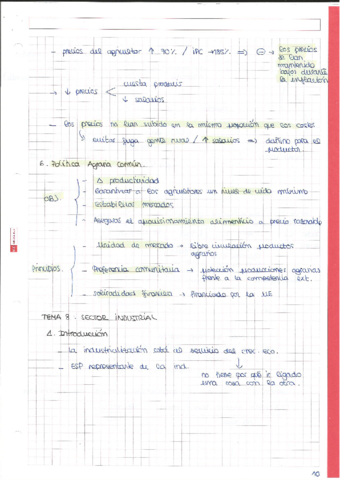 - precios del agricultor ↑ 90% / IPC → 185% ⇒ ⊖ → Los precios
se han
mantenido
bajos durante
la inflación
→ ↓ precios
cuesta producir
↓ salarios
- Los precios no han subido en la misma proporción que los costes
evitar fuga gente rural / ↑ salarios ⇒ dañino para el
productor.
6. Política Agraria Común.
OBJ
- Δ productividad
- Garantizar a los agricultores un nivel de vida mínimo
- Estabilizar mercados
- Asegurar el aprovisionamiento alimenticio a precio razonable
Principios
- Unidad de mercado → libre circulación productos
agrarios
- Preferencia comunitaria → protección producciones agrarias
frente a la competencia ext.
- solidaridad financiera → financiado por la UE
TEMA 8. SECTOR INDUSTRIAL
1. Introducción
- la industrialización está al servicio del crec. eco.
- ESP representante de la ind.
no tiene por qué ir ligado
una cosa con la otra.
10